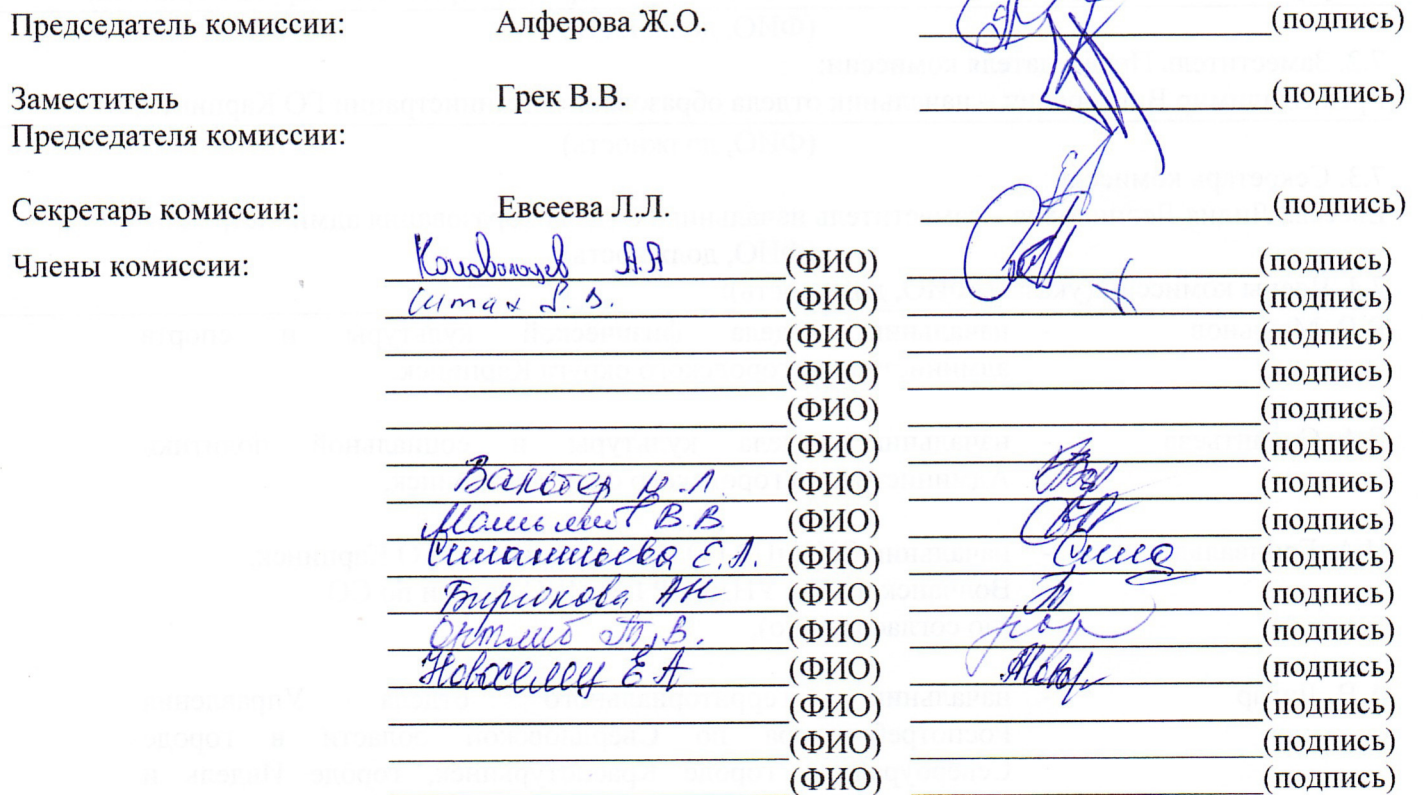 Председатель комиссии: Алферова Ж.О. (подпись)
Заместитель Грек В.В. (подпись)
Председателя комиссии:
Секретарь комиссии: Евсеева Л.Л. (подпись)
Члены комиссии: А.А (ФИО) (подпись)
Штах В. (ФИО) (подпись)
(ФИО) (подпись)
(ФИО) (подпись)
(ФИО) (подпись)
(ФИО) (подпись)
Вальтер И.Л (ФИО) (подпись)
В.В (ФИО) (подпись)
Е.А. (ФИО) (подпись)
Бирюкова АН (ФИО) (подпись)
Т.В. (ФИО) (подпись)
Новоселец Е А (ФИО) (подпись)
(ФИО) (подпись)
(ФИО) (подпись)
(ФИО) (подпись)